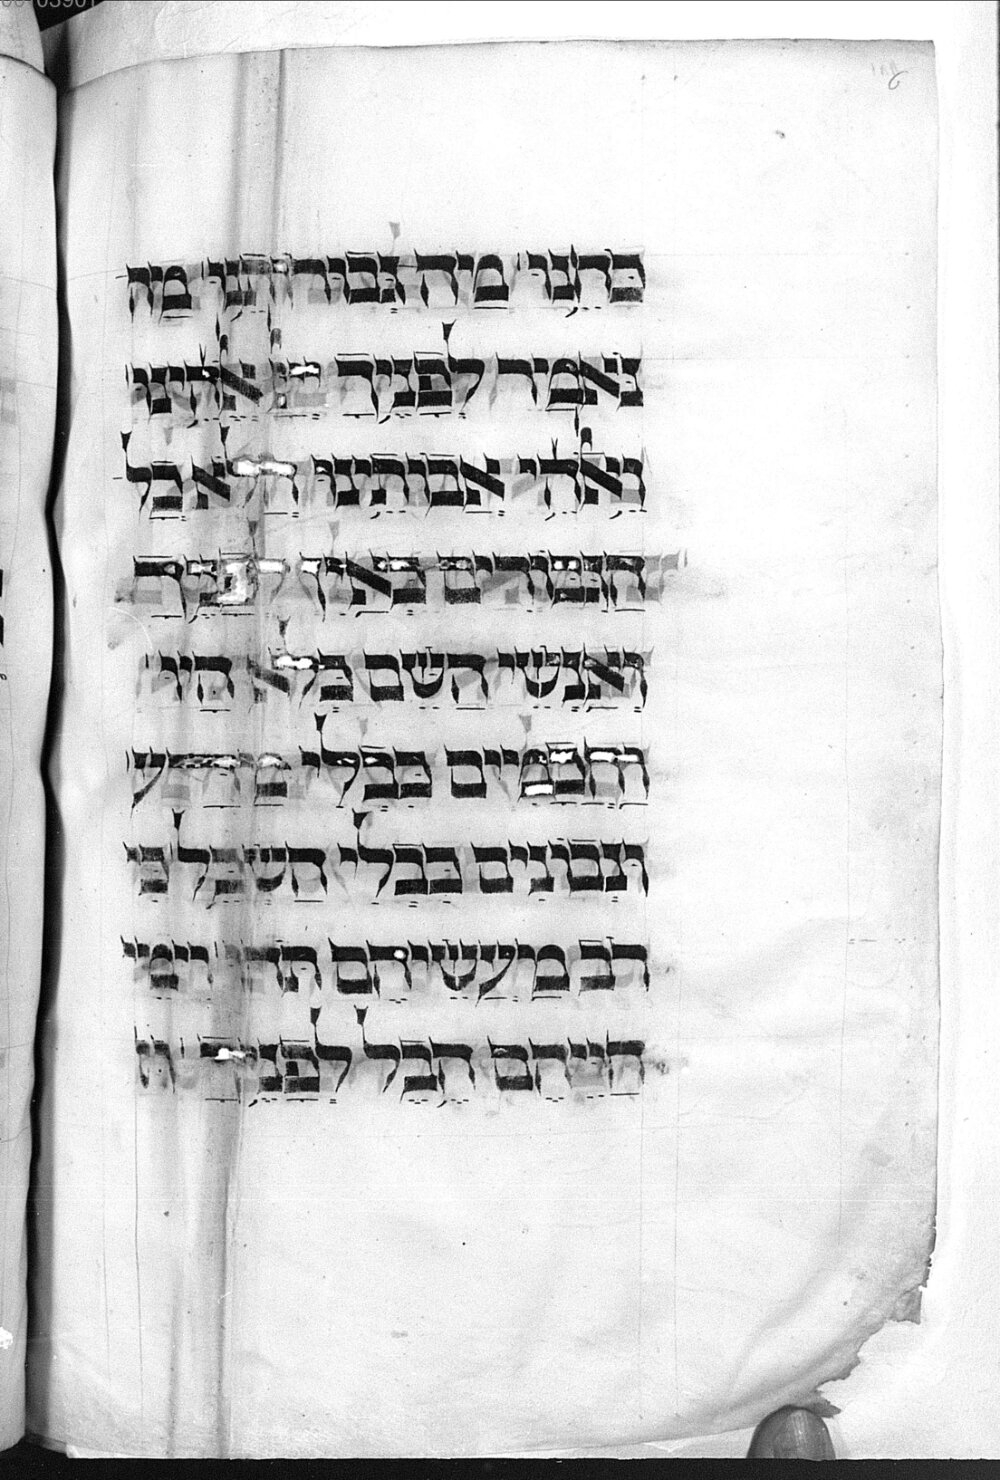 03901
כחנו מה גבורתנו מה
נאמר לפניך יי אלהינו
ואלהי אבותינו הלא כל
הגבורים כאין לפניך
ואנשי השם כלא היו
וחכמים כבלי מדע
ונבונים כבלי השכל כי
רב מעשיהם תהו וימי
חייהם הבל לפניך